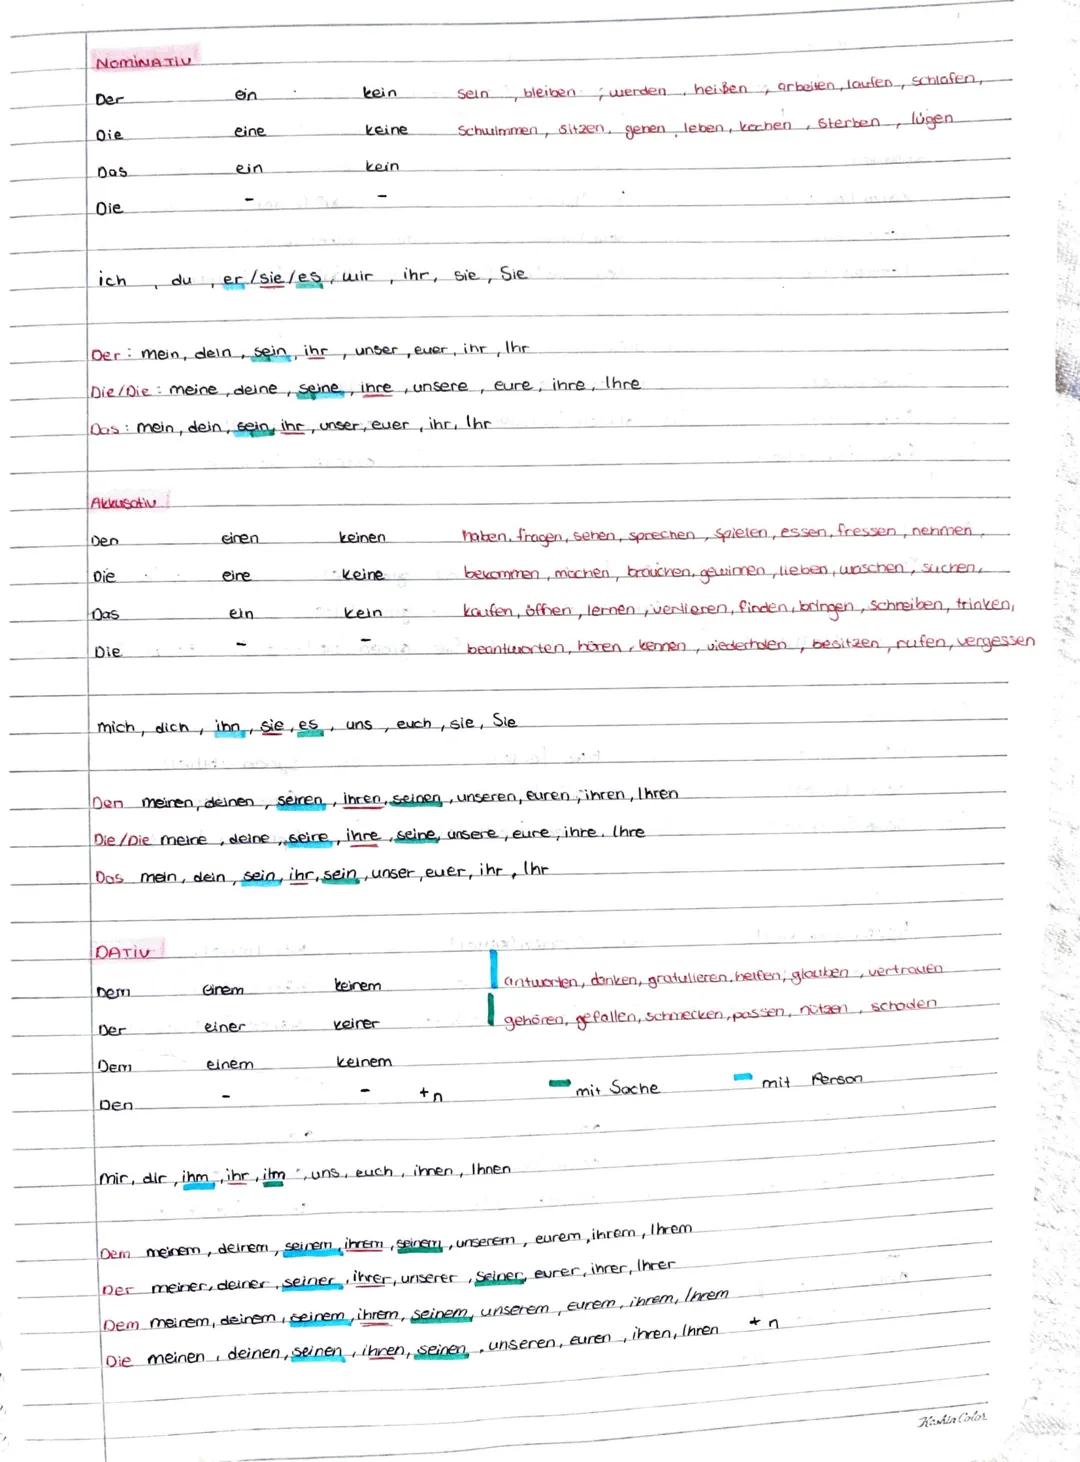 NOMINATIV
Der ein kein sein, bleiben, werden, heißen, arbeiten, laufen, schlafen,
Die eine keine Schwimmen, sitzen, gehen, leben, kochen, sterben, lügen
Das ein kein
Die - -
ich, du, er/sie/es, wir, ihr, sie, Sie
Der: mein, dein, sein, ihr, unser, euer, ihr, Ihr
Die/Die: meine, deine, seine, ihre, unsere, eure, ihre, Ihre
Das: mein, dein, sein, ihr, unser, euer, ihr, Ihr
Akkusativ
Den einen keinen haben, fragen, sehen, sprechen, spielen, essen, fressen, nehmen,
Die eine keine bekommen, machen, brauchen, gewinnen, lieben, waschen, suchen,
Das ein kein kaufen, öffnen, lernen, verlieren, finden, bringen, schreiben, trinken,
Die - - beantworten, hören, kennen, wiederholen, besitzen, rufen, vergessen
mich, dich, ihn, sie, es, uns, euch, sie, Sie
Den meinen, deinen, seinen, ihren, seinen, unseren, euren, ihren, Ihren
Die/Die meine, deine, seine, ihre, seine, unsere, eure, ihre, Ihre
Das mein, dein, sein, ihr, sein, unser, euer, ihr, Ihr
DATIV
Dem einem keinem antworten, danken, gratulieren, helfen, glauben, vertrauen
Der einer keiner gehören, gefallen, schmecken, passen, nützen, schaden
Dem einem keinem
Den - - +n mit Sache mit Person
mir, dir, ihm, ihr, ihm, uns, euch, ihnen, Ihnen
Dem meinem, deinem, seinem, ihrem, seinem, unserem, eurem, ihrem, Ihrem
Der meiner, deiner, seiner, ihrer, unserer, seiner, eurer, ihrer, Ihrer
Dem meinem, deinem, seinem, ihrem, seinem, unserem, eurem, ihrem, Ihrem
Die meinen, deinen, seinen, ihren, seinen, unseren, euren, ihren, Ihren +n